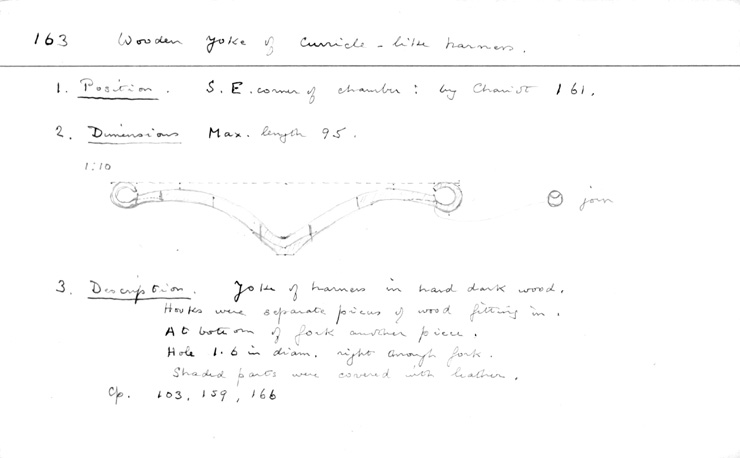 163 Wooden Yoke of curricle-like harness.
1. Position. S.E. corner of chamber: by Chariot 161.
2. Dimensions Max. length 95.
1:10
join
3. Description. Yoke of harness in hard dark wood.
Hooks were separate pieces of wood fitting in.
At bottom of fork another piece.
Hole 1.6 in diam. right through fork.
Shaded parts were covered with leather.
Cp. 103, 159, 166